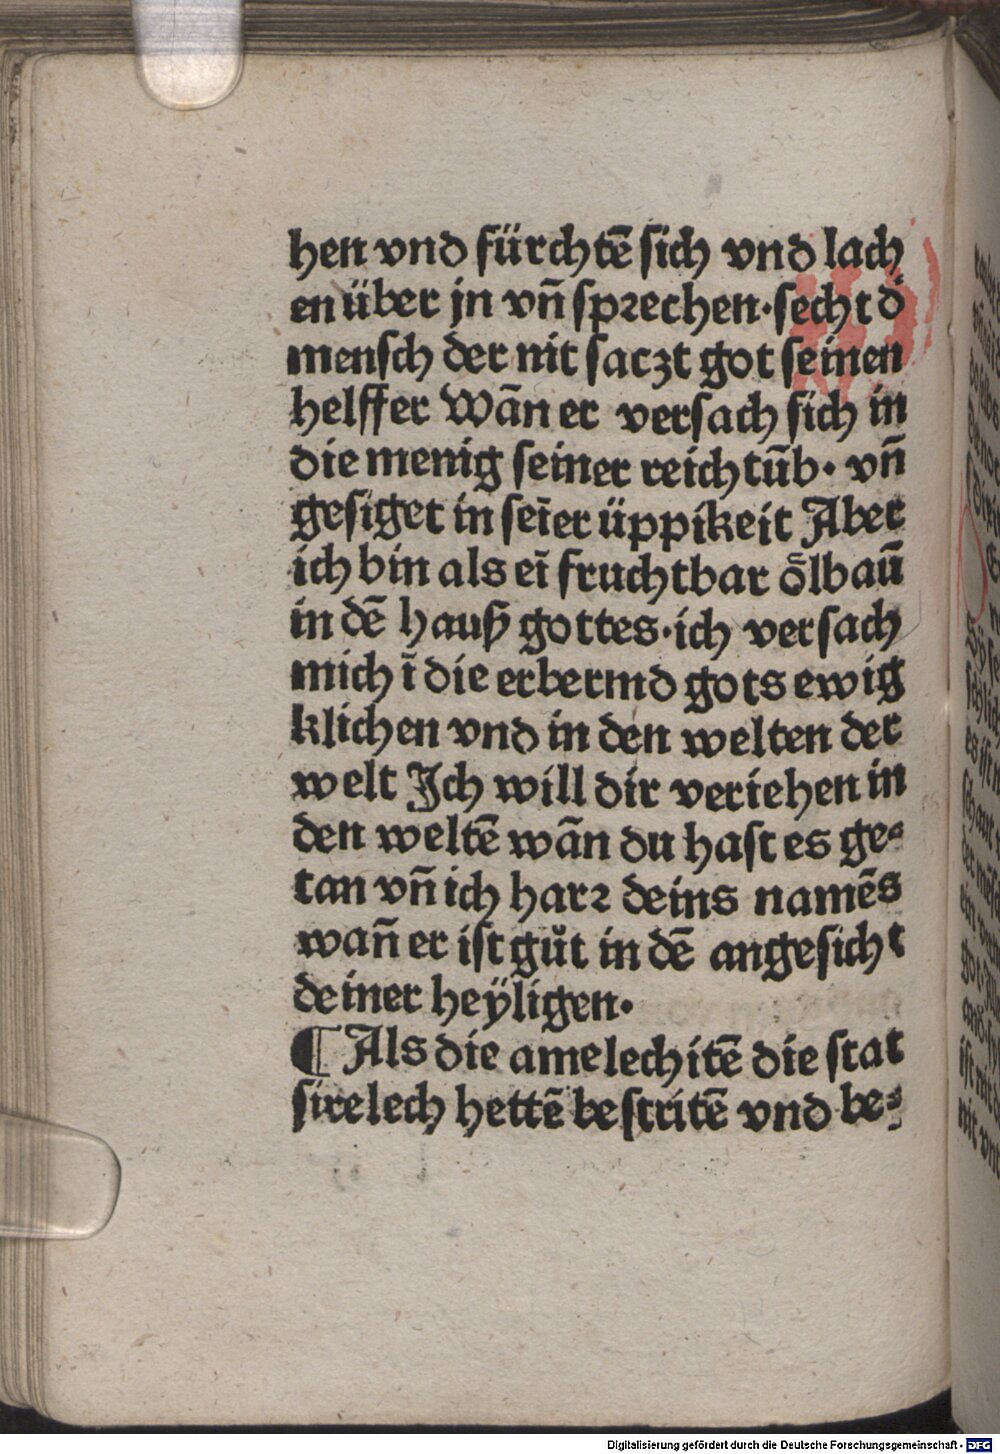 hen vnd fürchtē sich vnd lach
en über jn vn̄ sprechen·secht d'
mensch der nit saczt got seinen
helffer Wān er versach sich in
die menig seiner reichtūb· vn̄
gesiget in seīer üppikeit Aber
ich bin als eī fruchtbar ōlbaū
in dē hauß gottes·ich versach
mich ī die erbermd gots ewig
klichen vnd in den welten der
welt Ich will dir veriehen in
den weltē wān du hast es ge-
tan vn̄ ich harr deins namēs
wan̄ er ist gůt in dē angesicht
deiner heÿligen·
¶ Als die amelechitē die stat
sirelech hettē bestritē vnd be-
Digitalisierung gefördert durch die Deutsche Forschungsgemeinschaft - DFG